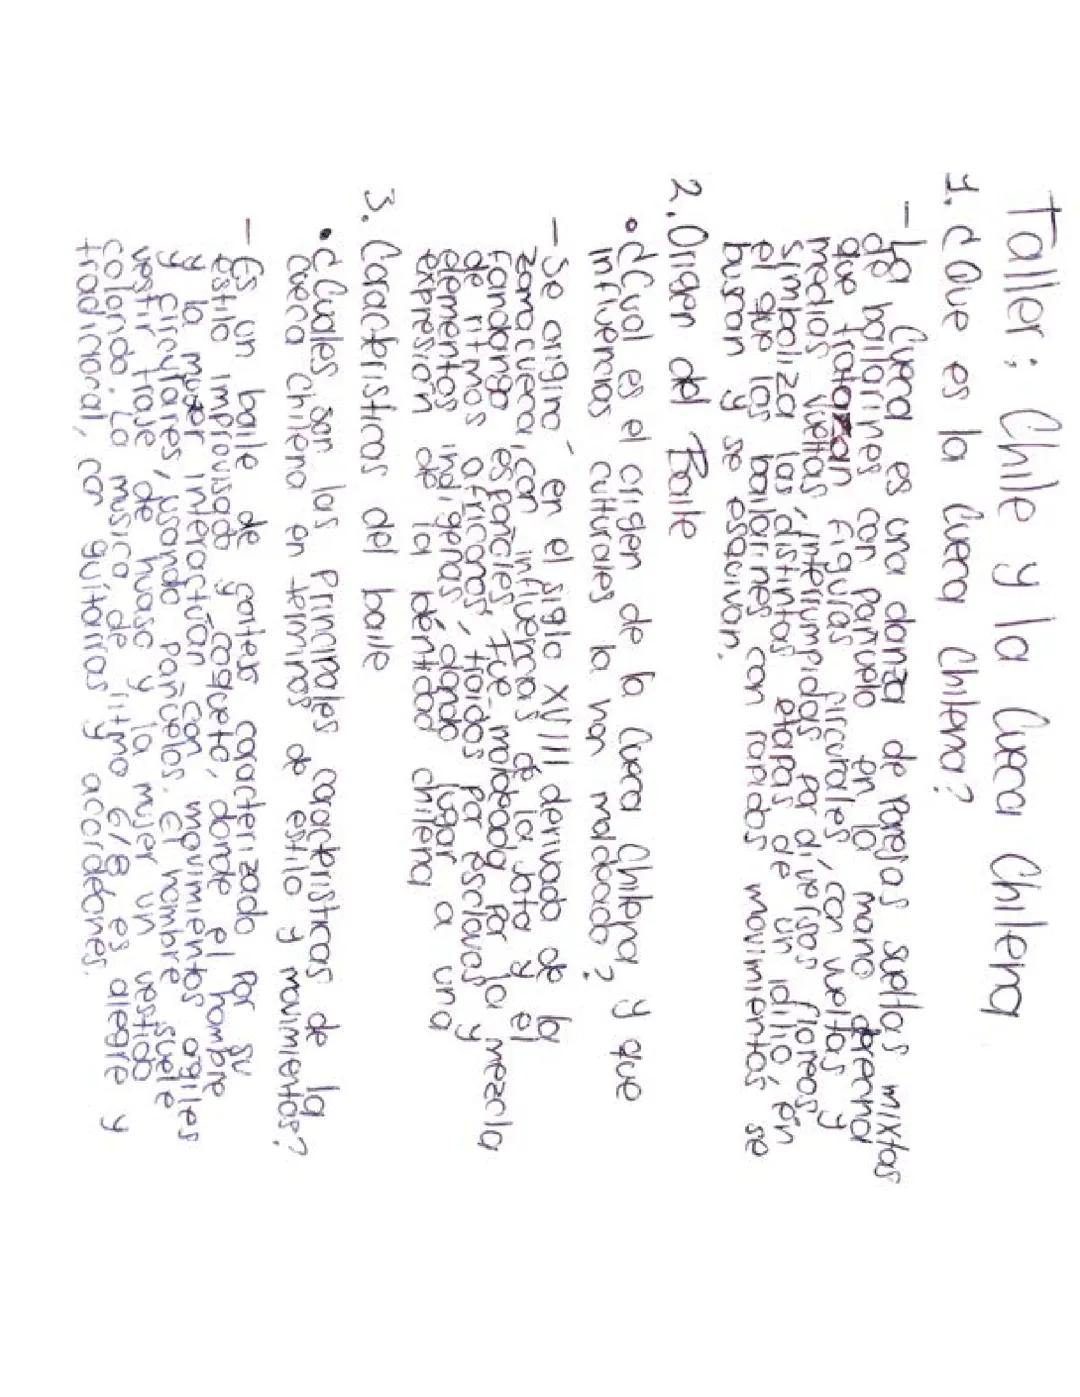 Taller: Chile y la Cueca Chilena
1. ¿Que es la Cueca Chilena?
- La Cueca es una danza de parejas sueltas mixtas
de bailarines con pañuelo en la mano derecha
que tratazan figuras circulares, con vueltas y
medias vueltas, interrumpidas por diversos floreos
simboliza las distintas etapas de un idilio, en
el que los bailarines con rapidos movimientos, se
buscan y se esquivan.
2. Origen del Baile
• ¿Cual es el origen de la Cueca Chilena, y que
influencias culturales la han moldeado?
- Se origino en el siglo XVIII derivado de la
zamacueca, con influencias de la jota y el
fandango españoles, fue moldeada por la mezcla
de ritmos africanos, traidos por esclavos y
elementos indigenas, dando lugar a una
expresión de la identidad chilena
3. Caracteristicas del baile
• ¿Cuales son las principales caracteristicas de la
cueca chilena en terminos de estilo y movimientos?
- Es un baile de galteo caracterizado por su
estilo improvisado y coqueto, donde el hombre
y la mujer interactúan con movimientos agiles
y circulares, usando pañuelos. El hombre suele
vestir traje de huaso y la mujer un vestido
colorido. La musica de ritmo 6/8, es alegre y
tradicional, con guitarras y acordeones.